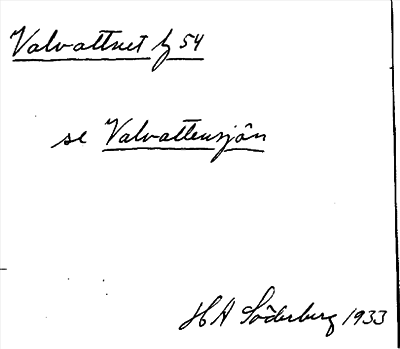 Valvattnet by 54
se Valvattensjön
HA Söderberg 1933